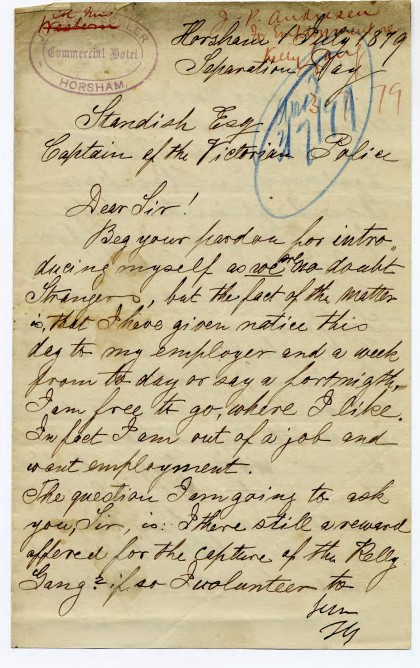 Commercial Hotel
HORSHAM.
J. P. Anderson
Kelly Gang
Horsham 1 July 1879
Separation Day
Standish Esq
Captain of the Victorian Police
Dear Sir!
Beg your pardon for intro-
ducing myself as we are no doubt
Strangers, but the fact of the matter
is, that I have given notice this
day to my employer and a week
from to day or say a fortnight,
I am free to go, where I like.
In fact I am out of a job and
want employment.
The question I am going to ask
you, Sir, is: Is there still a reward
offered for the capture of the Kelly
Gang? if so I volunteer to